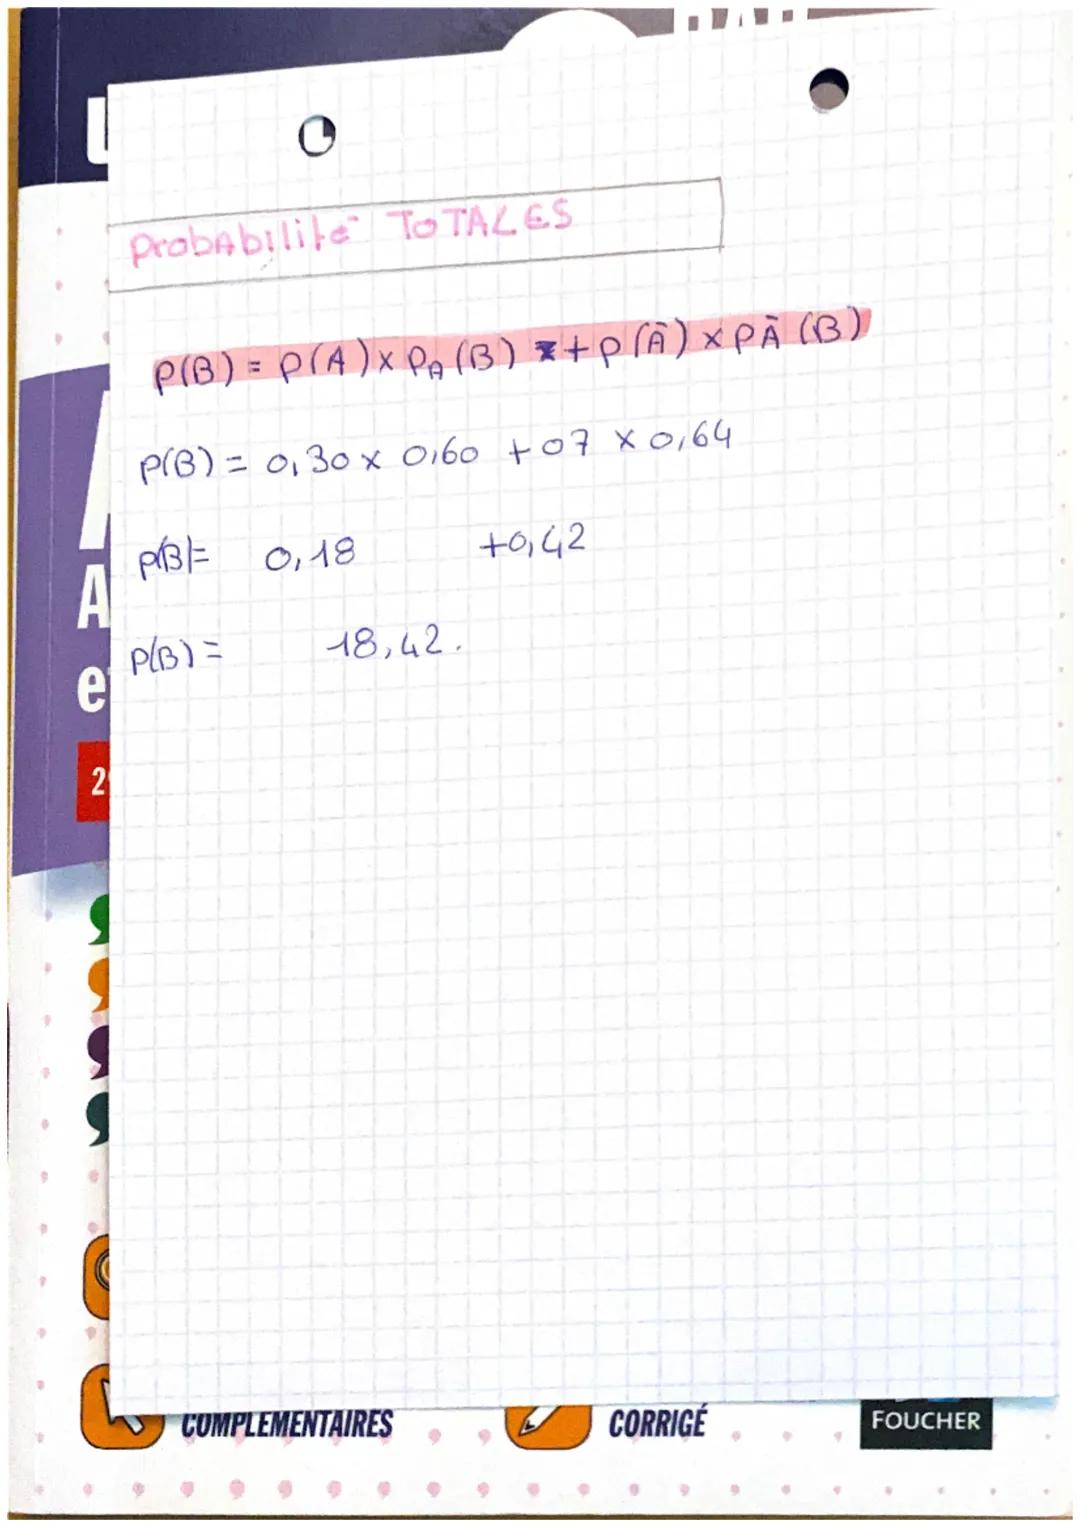 Probabilité TOTALES
P(B) = P(A) x P_A (B) + P(Ā) x PĀ (B)
P(B) = 0,30 x 0,60 + 07 x 0,64
P(B)= 0,18 +0,42
P(B) = 18,42.
A
e
2
COMPLÉMENTAIRES
CORRIGÉ
FOUCHER